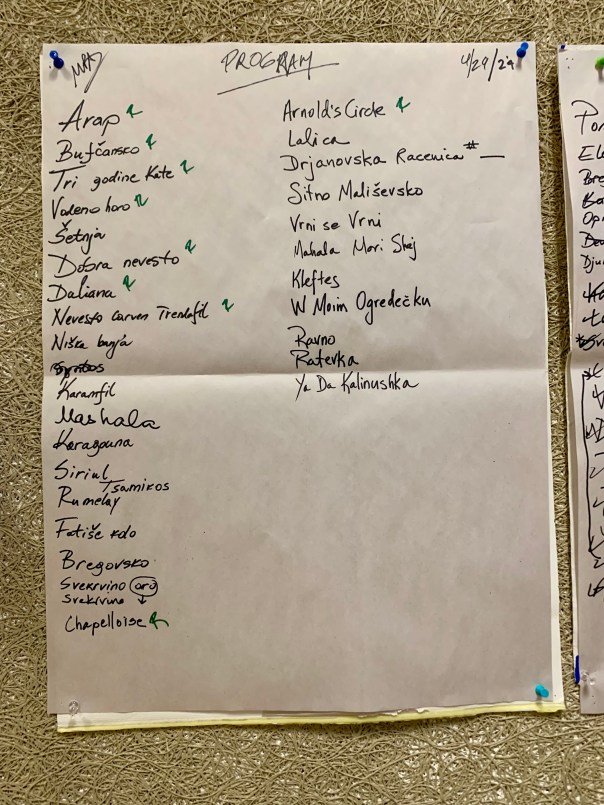 PROGRAM
4/29/29
Arap
Bufčansko
Tri godine Kate
Vodeno horo
Šetnja
Dobra nevesto
Daliana
Nevesto Carven Trendafil
Niška banja
Karamfil
Mashala
Karagouna
Siriul
Tsamikos
Rumelay
Fatiše kolo
Bregovsko
Svekrvino oro
Svekrvino
Chapelloise
Arnold's Circle
Lalica
Drjanovska Racenica # —
Sitno Mališevsko
Vrni se Vrni
Mahala Mori Shej
Kleftes
W Moim Ogredečku
Ravno
Ratevka
Ya Da Kalinushka